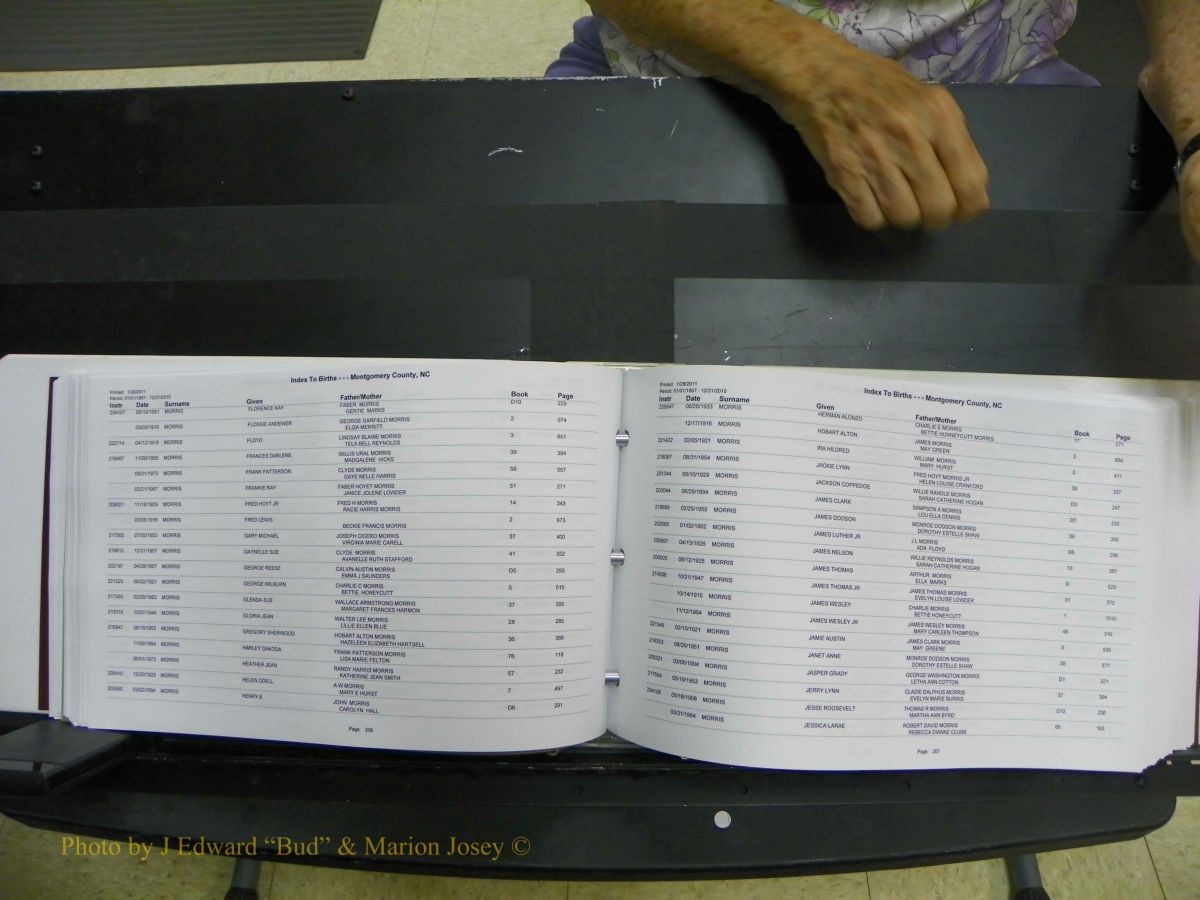 Printed: 1/28/2011
Period: 01/01/1957 - 12/31/2010
Index To Births - - - Montgomery County, NC
Instr Date Surname Given Father/Mother Book Page
MORRIS FLORENCE KAY FABER MORRIS D10 229
GERTIE MARKS
MORRIS FLOSSIE ANDEWER GEORGE GARFIELD MORRIS 2 974
ELIZA MERRITT
222714 04/12/1918 MORRIS FLOYD LINDSAY BLAINE MORRIS 3 651
TELA BELL REYNOLDS
MORRIS FRANCES DARLENE WILLIS URAL MORRIS 39 394
MADGALENE HICKS
MORRIS FRANK PATTERSON CLYDE MORRIS 58 557
GAYE NELLE HARRIS
03/21/1967 MORRIS FRANKIE RAY FABER HOYET MORRIS 51 271
JANICE JOLENE LOWDER
MORRIS FRED HOYT JR FRED H MORRIS 14 343
RACIE HARRIS MORRIS
03/05/1916 MORRIS FRED LEWIS 2 973
BECKIE FRANCIS MORRIS
MORRIS GARY MICHAEL JOSEPH CICERO MORRIS 37 400
VIRGINIA MARIE CARELL
MORRIS GAYNELLE SUE CLYDE MORRIS 41 352
AVANELLE RUTH STAFFORD
MORRIS GEORGE REESE CALVIN AUSTIN MORRIS D5 250
EMMA J SAUNDERS
MORRIS GEORGE WILBURN CHARLIE C MORRIS 5 515
BETTIE HONEYCUTT
MORRIS GLENDA SUE WALLACE ARMSTRONG MORRIS 37 395
MARGARET FRANCES HARMON
MORRIS GLORIA JEAN WALTER LEE MORRIS 28 285
LILLIE ELLEN BLUE
MORRIS GREGORY SHERWOOD HOBART ALTON MORRIS 36 388
HAZELEEN ELIZABETH HARTSELL
MORRIS HARLEY DAKODA FRANK PATTERSON MORRIS 76 118
LISA MARIE FELTON
MORRIS HEATHER JEAN RANDY HARRIS MORRIS 57 232
KATHERINE JEAN SMITH
MORRIS HELEN ODELL A W MORRIS 7 497
MARY E HURST
MORRIS HENRY B JOHN MORRIS D6 291
CAROLYN HALL
Page: 206
Printed: 1/28/2011
Period: 01/01/1957 - 12/31/2010
Index To Births - - - Montgomery County, NC
Instr Date Surname Given Father/Mother Book Page
MORRIS HERMAN ALONZO CHARLIE E MORRIS 17 271
BETTIE HUNNEYCUTT MORRIS
12/17/1916 MORRIS HOBART ALTON JAMES MORRIS 2
MAY GREEN
221422 02/05/1921 MORRIS IRA HILDRED WILLIAM MORRIS 5
MARY HURST
08/31/1954 MORRIS JACKIE LYNN FRED HOYT MORRIS JR 38
HELEN LOUISE CRANFORD
05/10/1929 MORRIS JACKSON COPPEDGE WILLIE RANDLE MORRIS D3 247
SARAH CATHERINE HOGAN
06/29/1894 MORRIS JAMES CLARK SAMPSON A MORRIS D7
LOU ELLA DENNIS
02/25/1955 MORRIS JAMES DODSON MONROE DODSON MORRIS 39
DOROTHY ESTELLE SHAW
01/02/1902 MORRIS JAMES LUTHER JR J L MORRIS D6
ADA FLOYD
04/13/1926 MORRIS JAMES NELSON WILLIE REYNOLDS MORRIS 10
SARAH CATHERINE HOGAN
08/12/1925 MORRIS JAMES THOMAS ARTHUR MORRIS 9
ELLA MARKS
10/21/1947 MORRIS JAMES THOMAS JR JAMES THOMAS MORRIS 31 373
EVELYN LOUISE LOWDER
10/14/1915 MORRIS JAMES WESLEY CHARLIE MORRIS 1
BETTIE HONEYCUTT
11/12/1964 MORRIS JAMES WESLEY JR JAMES WESLEY MORRIS 48
MARY CARLEEN THOMPSON
02/10/1921 MORRIS JAMIE AUSTIN JAMES CLARK MORRIS 5
MAY GREENE
MORRIS JANET ANNE MONROE DODSON MORRIS 35 377
DOROTHY ESTELLE SHAW
03/06/1904 MORRIS JASPER GRADY GEORGE WASHINGTON MORRIS D1 321
LETHA ANN COTTON
MORRIS JERRY LYNN CLADIE DALPHUS MORRIS 37 394
EVELYN MARIE BURRIS
MORRIS JESSE ROOSEVELT THOMAS R MORRIS D10 230
MARTHA ANN BYRD
03/31/1984 MORRIS JESSICA LARAE ROBERT DAVID MORRIS 163
REBECCA DIANNE CLUSS
Page: 207
Photo by J Edward “Bud” & Marion Josey ©